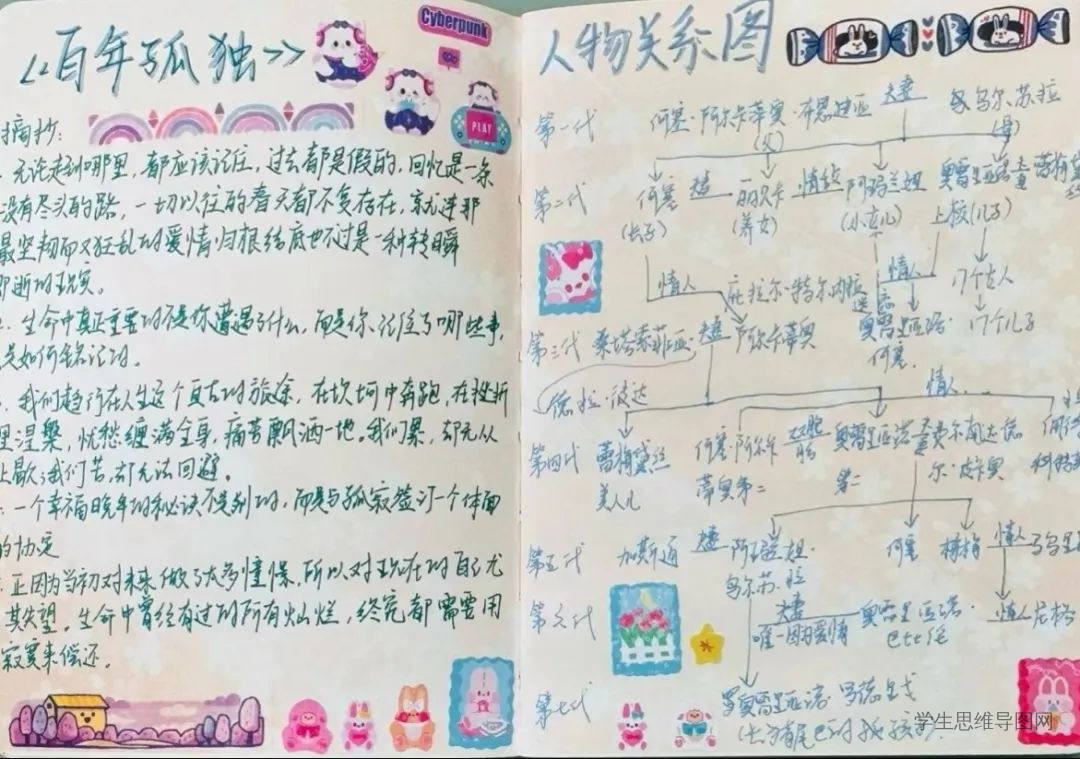 《百年孤独》
Cyberpunk
PLAY
摘抄:
无论走到哪里,都应该记住,过去都是假的,回忆是一条
没有尽头的路,一切以往的春天都不复存在,就连那
最坚韧而又狂乱的爱情归根结底也不过是一种转瞬
即逝的现实。
生命中真正重要的不是你遭遇了什么,而是你记住了哪些事,
是如何铭记的。
我们趋行在人生这个亘古的旅途,在坎坷中奔跑,在挫折
里涅槃,忧愁缠满全身,痛苦飘洒一地。我们累,却无从
止歇;我们苦,却无法回避。
一个幸福晚年的秘诀不是别的,而是与孤寂签订一个体面
的协定
正因为当初对未来做了太多憧憬,所以对现在的自己尤
其失望。生命中曾经有过的所有灿烂,终究都需要用
寂寞来偿还。
人物关系图
第一代 何塞·阿尔卡蒂奥·布恩迪亚 夫妻 乌尔苏拉
(父) (母)
第二代 何塞 夫妻 丽贝卡 情敌 阿玛兰妲 奥雷里亚诺 夫妻 蕾梅黛丝
(长子) (养女) (小女儿) 上校(儿子)
情人 庇拉尔·特尔内拉 情人 17个女人
第三代 桑塔索菲亚· 夫妻 阿尔卡蒂奥 奥雷里亚诺· 17个儿子
何塞
德拉·彼达 情人
第四代 蕾梅黛丝 何塞·阿尔卡 双胞胎 奥雷里亚诺 夫妻 费尔南达·德
美人儿 蒂奥第二 第二 尔·皮卡奥
第五代 加斯通 夫妻 阿玛兰妲· 何塞 梅梅 情人
乌尔苏拉
第六代 夫妻 奥雷里亚诺· 情人
唯一因为爱情
第七代 奥雷里亚诺·
学生思维导图网